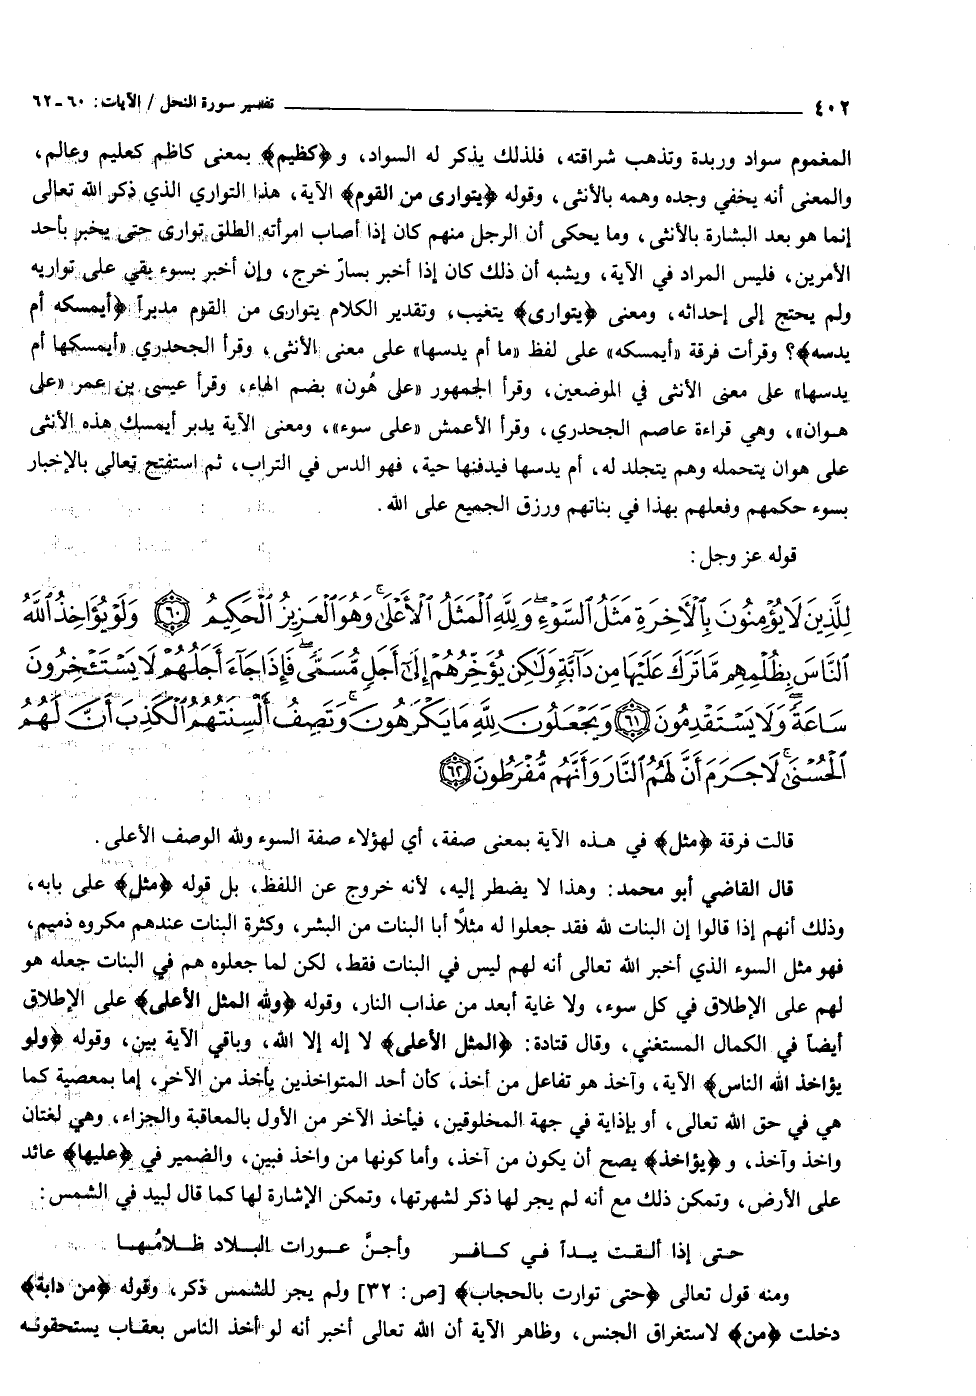 ٤٠٢ تفسير سورة النحل / الآيات: ٦٠-٦٢
المغموم سواد وربدة وتذهب شراقته، فلذلك يذكر له السواد، و﴿كظيم﴾ بمعنى كاظم كعليم وعالم،
والمعنى أنه يخفي وجده وهمه بالأنثى، وقوله ﴿يتوارى من القوم﴾ الآية، هذا التواري الذي ذكر الله تعالى
إنما هو بعد البشارة بالأنثى، وما يحكى أن الرجل منهم كان إذا أصاب امرأته الطلق توارى حتى يخبر بأحد
الأمرين، فليس المراد في الآية، ويشبه أن ذلك كان إذا أخبر بسارّ خرج، وإن أخبر بسوء بقي على تواريه
ولم يحتج إلى إحداثه، ومعنى ﴿يتوارى﴾ يتغيب، وتقدير الكلام يتوارى من القوم مدبراً ﴿أيمسكه أم
يدسه﴾؟ وقرأت فرقة «أيمسكه» على لفظ «ما أم يدسها» على معنى الأنثى، وقرأ الجحدري «أيمسكها أم
يدسها» على معنى الأنثى في الموضعين، وقرأ الجمهور «على هُون» بضم الهاء، وقرأ عيسى بن عمر «على
هـوان»، وهي قراءة عاصم الجحدري، وقرأ الأعمش «على سوء»، ومعنى الآية يدبر أيمسك هذه الأنثى
على هوان يتحمله وهم يتجلد له، أم يدسها فيدفنها حية، فهو الدس في التراب، ثم استفتح تعالى بالإخبار
بسوء حكمهم وفعلهم بهذا في بناتهم ورزق الجميع على الله.
قوله عز وجل:
لِلَّذِينَ لَا يُؤْمِنُونَ بِالْآخِرَةِ مَثَلُ السَّوْءِ وَلِلَّهِ الْمَثَلُ الْأَعْلَىٰ وَهُوَ الْعَزِيزُ الْحَكِيمُ ﴿٦٠﴾ وَلَوْ يُؤَاخِذُ اللَّهُ
النَّاسَ بِظُلْمِهِم مَّا تَرَكَ عَلَيْهَا مِن دَابَّةٍ وَلَٰكِن يُؤَخِّرُهُمْ إِلَىٰ أَجَلٍ مُّسَمًّى فَإِذَا جَاءَ أَجَلُهُمْ لَا يَسْتَئْخِرُونَ
سَاعَةً وَلَا يَسْتَقْدِمُونَ ﴿٦١﴾ وَيَجْعَلُونَ لِلَّهِ مَا يَكْرَهُونَ وَتَصِفُ أَلْسِنَتُهُمُ الْكَذِبَ أَنَّ لَهُمُ
الْحُسْنَىٰ لَا جَرَمَ أَنَّ لَهُمُ النَّارَ وَأَنَّهُم مُّفْرَطُونَ ﴿٦٢﴾
قالت فرقة ﴿مثل﴾ في هـذه الآية بمعنى صفة، أي لهؤلاء صفة السوء ولله الوصف الأعلى.
قال القاضي أبو محمد: وهذا لا يضطر إليه، لأنه خروج عن اللفظ، بل قوله ﴿مثل﴾ على بابه،
وذلك أنهم إذا قالوا إن البنات لله فقد جعلوا له مثلاً أبا البنات من البشر، وكثرة البنات عندهم مكروه ذميم،
فهو مثل السوء الذي أخبر الله تعالى أنه لهم ليس في البنات فقط، لكن لما جعلوه هم في البنات جعله هو
لهم على الإطلاق في كل سوء، ولا غاية أبعد من عذاب النار، وقوله ﴿ولله المثل الأعلى﴾ على الإطلاق
أيضاً في الكمال المستغني، وقال قتادة: ﴿المثل الأعلى﴾ لا إله إلا الله، وباقي الآية بين، وقوله ﴿ولو
يؤاخذ الله الناس﴾ الآية، وآخذ هو تفاعل من أخذ، كأن أحد المتواخذين يأخذ من الآخر، إما بمعصية كما
هي في حق الله تعالى، أو بإذاية في جهة المخلوقين، فيأخذ الآخر من الأول بالمعاقبة والجزاء، وهي لغتان
واخذ وآخذ، و﴿يؤاخذ﴾ يصح أن يكون من آخذ، وأما كونها من واخذ فبين، والضمير في ﴿عليها﴾ عائد
على الأرض، وتمكن ذلك مع أنه لم يجر لها ذكر لشهرتها، وتمكن الإشارة لها كما قال لبيد في الشمس:
حـتى إذا ألـقـت يـدآ فـي كـافـر وأجـنَّ عـورات الـبـلاد ظـلامُـهـا
ومنه قول تعالى ﴿حتى توارت بالحجاب﴾ [ص: ٣٢] ولم يجر للشمس ذكر، وقوله ﴿من دابة﴾
دخلت ﴿من﴾ لاستغراق الجنس، وظاهر الآية أن الله تعالى أخبر أنه لو أخذ الناس بعقـاب يستحقونـه